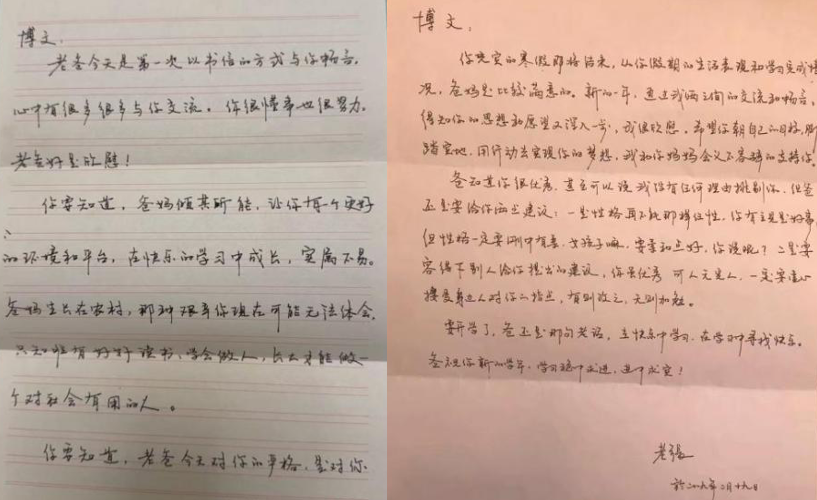 博文：
老爸今天是第一次以书信的方式与你畅言，
心中有很多很多与你交流。你很懂事也很努力，
老爸好是欣慰！
你要知道，爸妈倾其所能，让你有一个更好
的环境和平台，在快乐的学习中成长，实属不易。
爸妈生长在农村，那种艰辛你现在可能无法体会，
只知唯有好好读书、学会做人，长大才能做一
个对社会有用的人。
你要知道，老爸今天对你的严格，是对你
博文：
你充实的寒假即将结束，从你假期的生活表现和学习完成情
况，爸妈是比较满意的。新的一年，通过我两之间的交流和畅言，
得知你的思想和愿望又深入一步，我很欣慰，希望你朝自己的目标，脚
踏实地，用行动去实现你的梦想，我和你妈妈会义不容辞的支持你。
爸知道你很优秀，甚至可以说我没有任何理由挑剔你，但爸
还是要给你两点建议：一是性格再不能那样任性，你有主见是好事，
但性格一定要刚中有柔，女孩子嘛，要柔和点好，你说呢？二是要
容得下别人给你提出的建议，你虽优秀，可人无完人，一定要虚心
接受身边人对你的指点，有则改之，无则加勉。
要开学了，爸还是那句老话，在快乐中学习，在学习中寻找快乐。
爸祝你新的学年，学习稳中求进，进中求实！
老张
于二〇一九年二月十九日